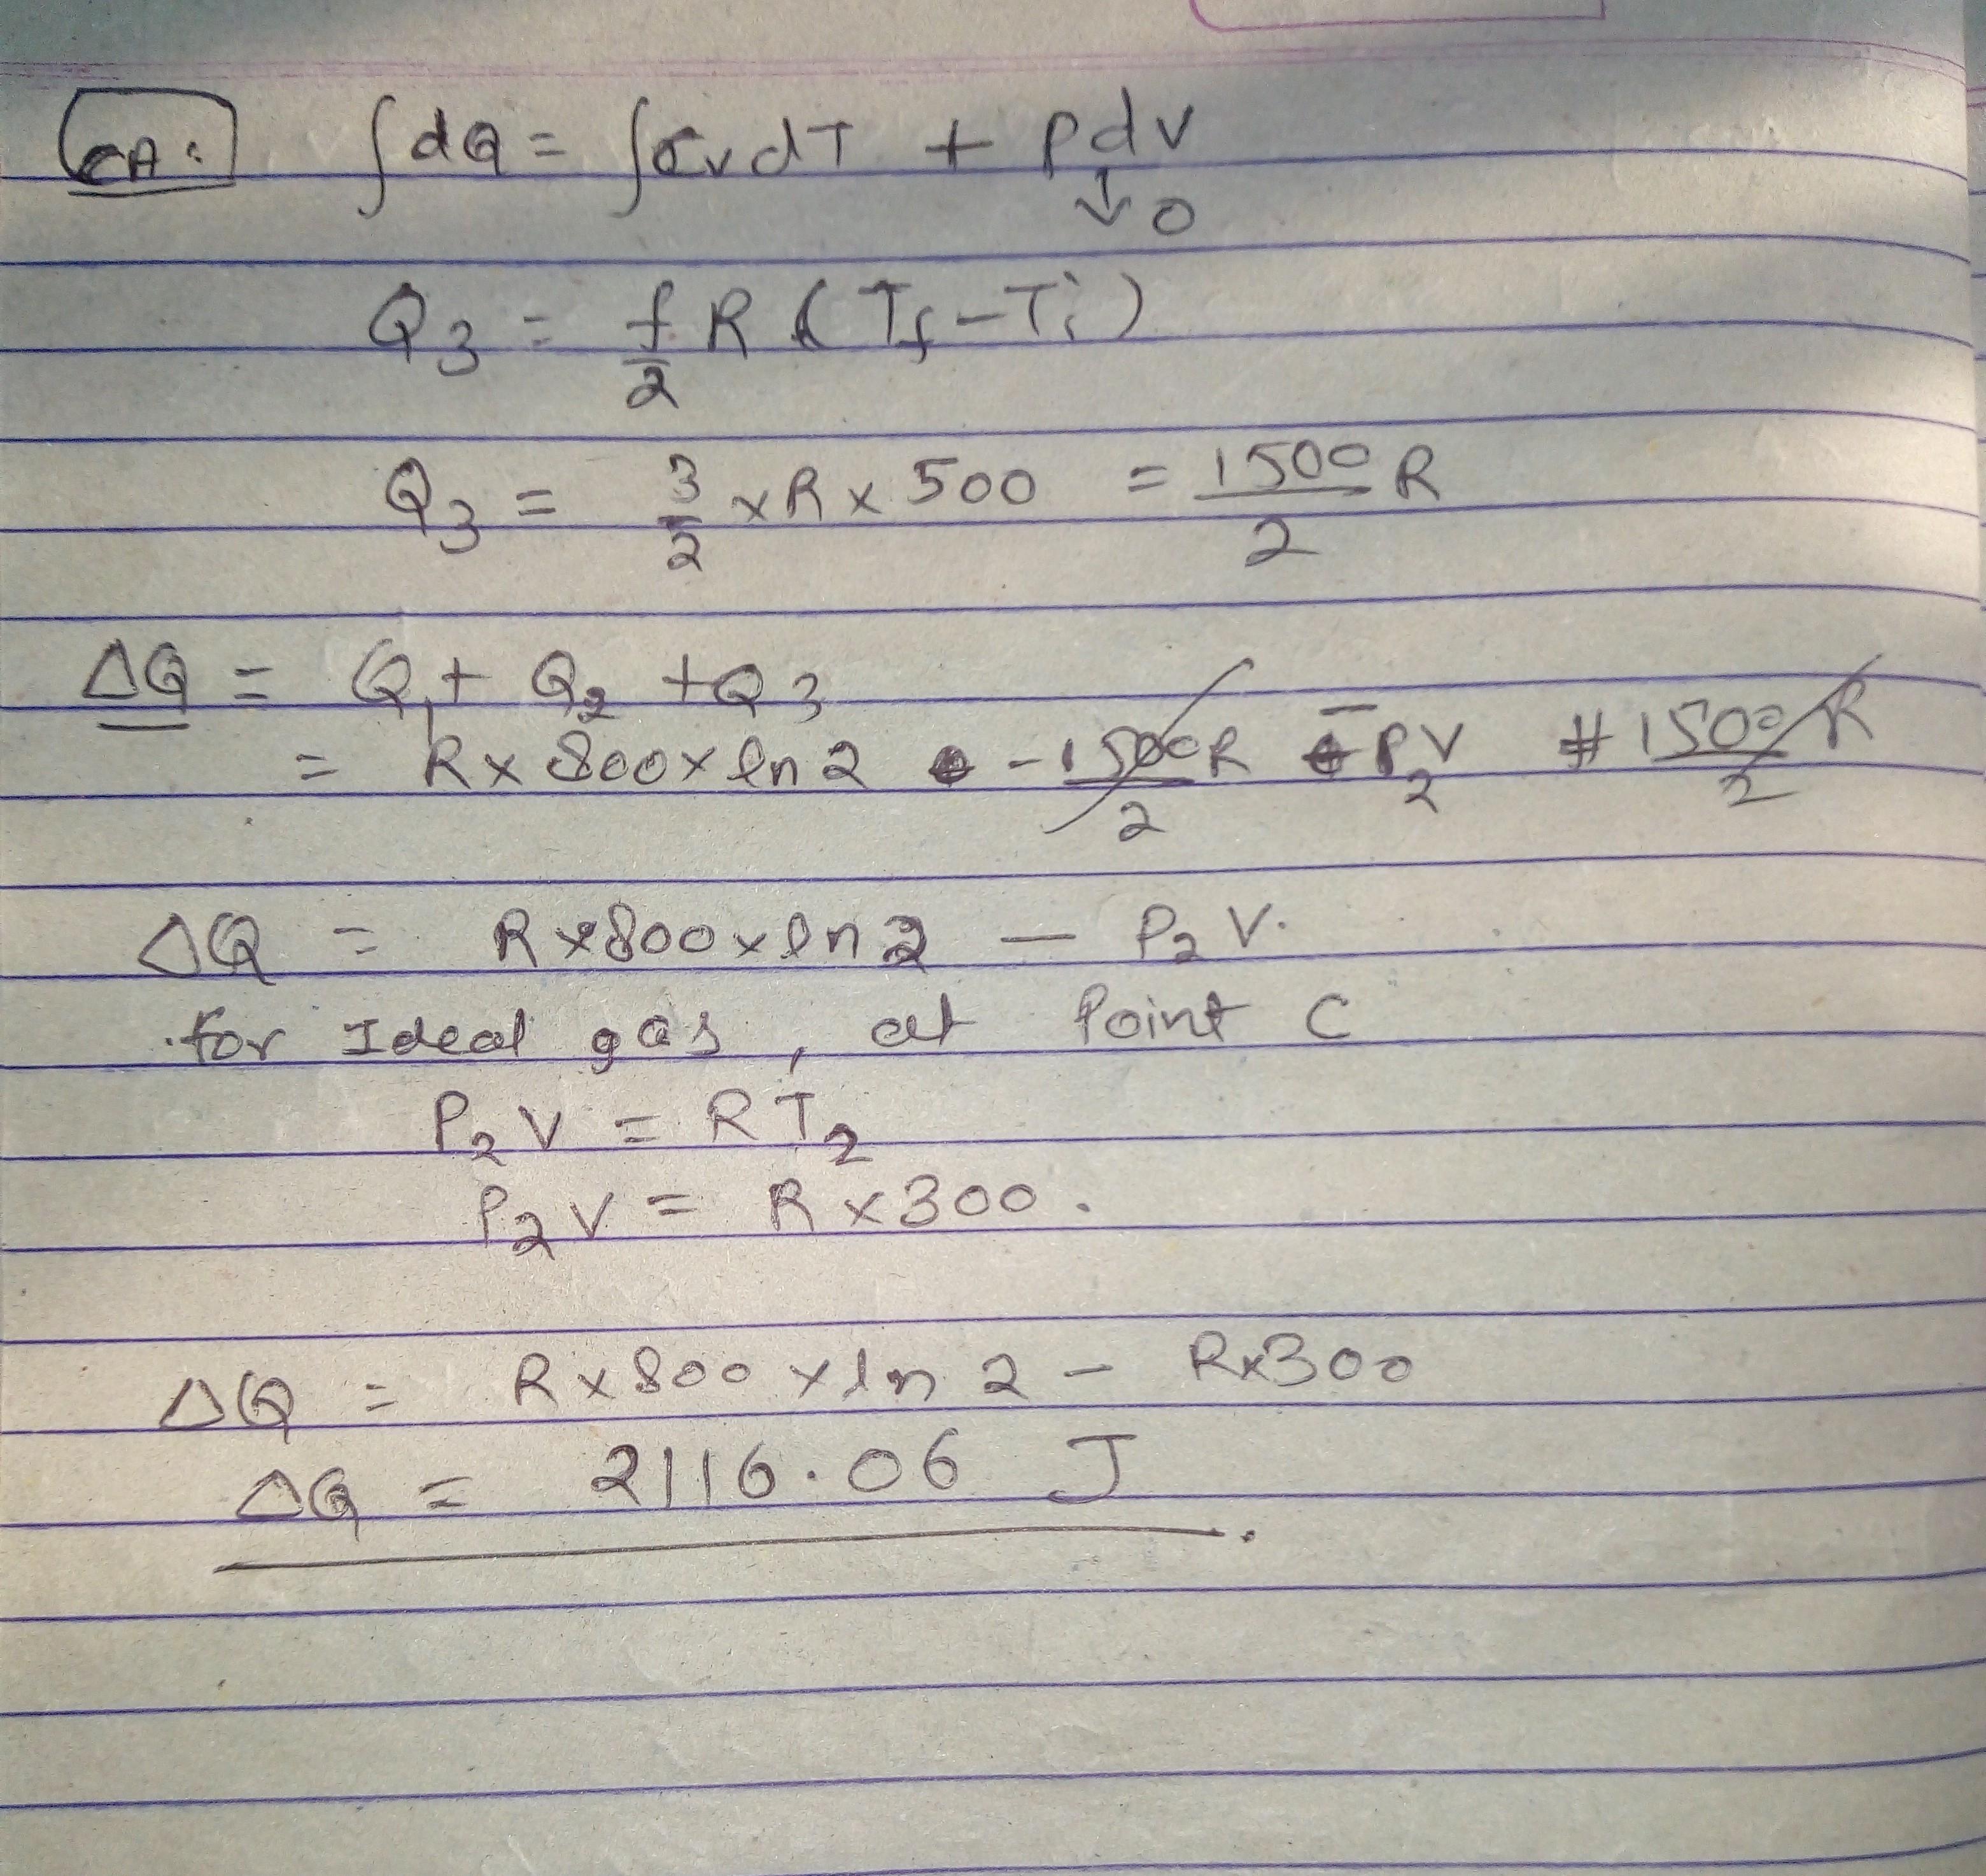 CA: ∫dQ = ∫CvdT + PdV
↓0
Q3 = f/2 R (Tf-Ti)
Q3 = 3/2 × R × 500 = 1500/2 R
ΔQ = Q1 + Q2 + Q3
= R × 800 × ln 2 - 1500R/2 - P2V + 1500R/2
ΔQ = R × 800 × ln 2 - P2 V.
for Ideal gas, at Point C
P2 V = R T2
P2 V = R × 300.
ΔQ = R × 800 × ln 2 - R×300
ΔQ = 2116.06 J.